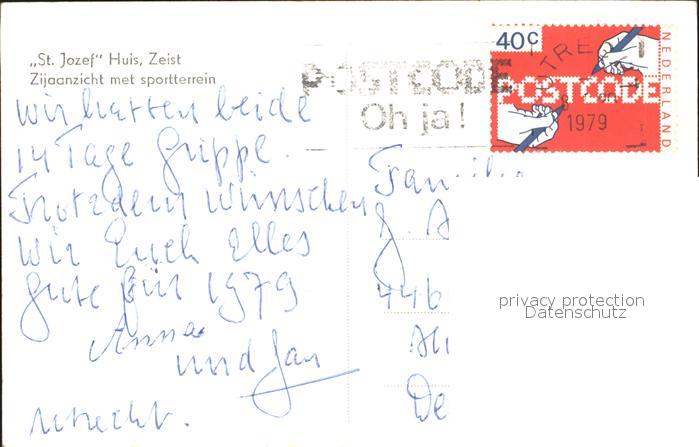 „St. Jozef" Huis, Zeist
Zijaanzicht met sportterrein
POSTCODE
Oh ja!
40c
NEDERLAND
POSTCODE
UTRE
1979
Wir hatten beide
14 Tage Grippe.
Trotzdem wünschen
wir Euch alles
gute für 1979
Anna
und Jan
Utrecht.
Fami
J. A
446
De
privacy protection
Datenschutz